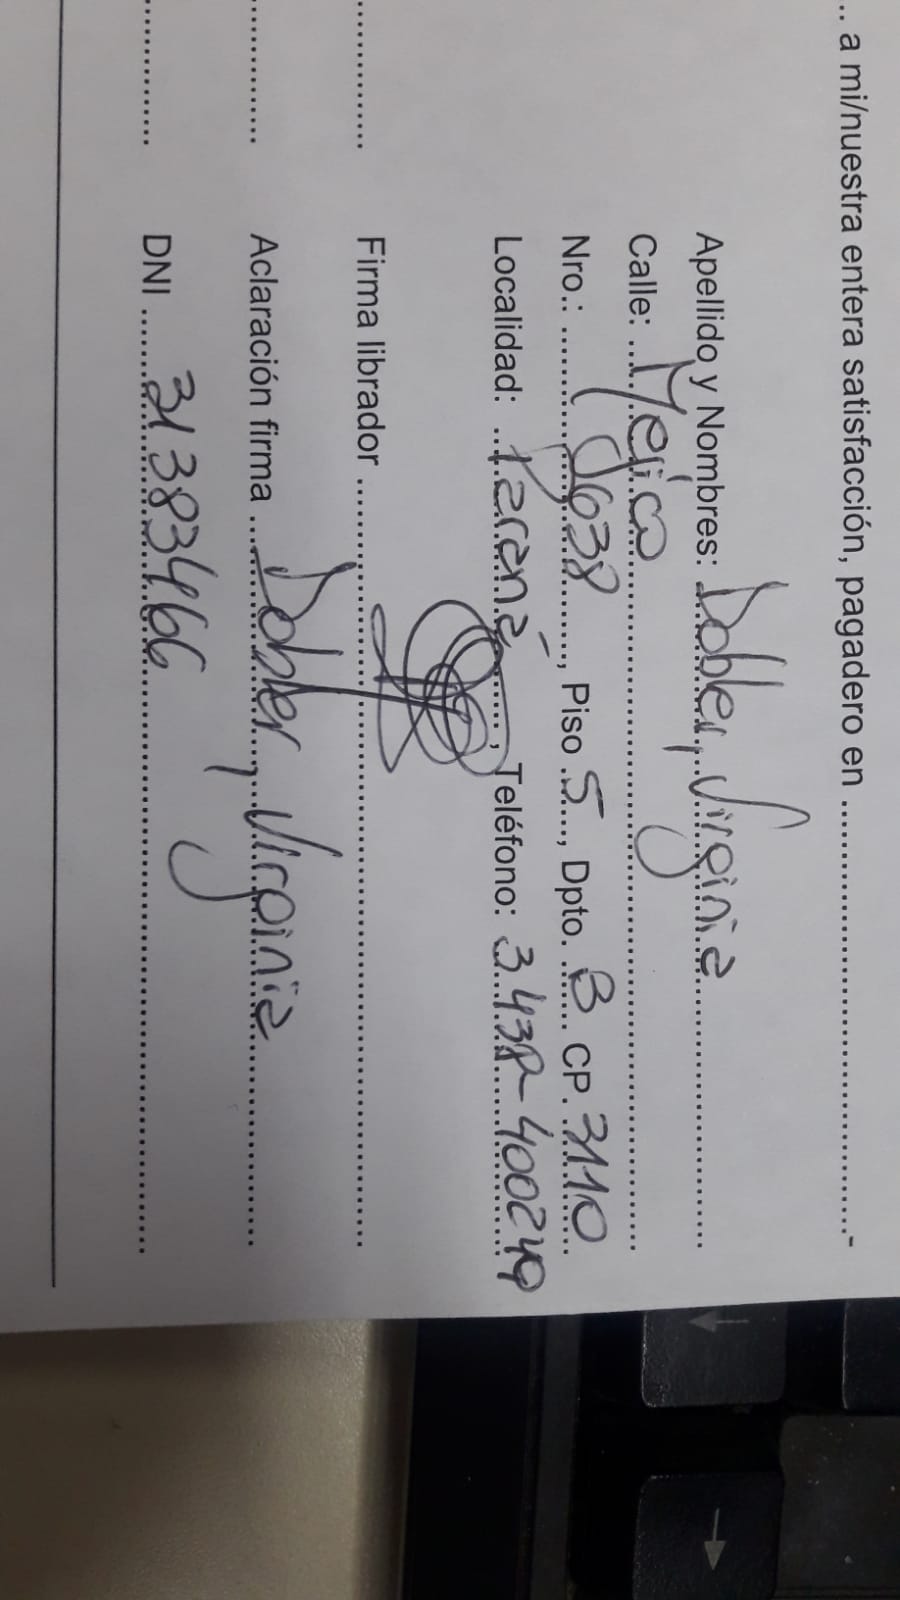 ... a mi/nuestra entera satisfacción, pagadero en ..............................-
Apellido y Nombres: Dobler, Virginia
Calle: Mejico
Nro.: 638, Piso 5, Dpto. B CP. 3110
Localidad: Paraná, Teléfono: 3438-400249
Firma librador
Aclaración firma Dobler, Virginia
DNI 31383466